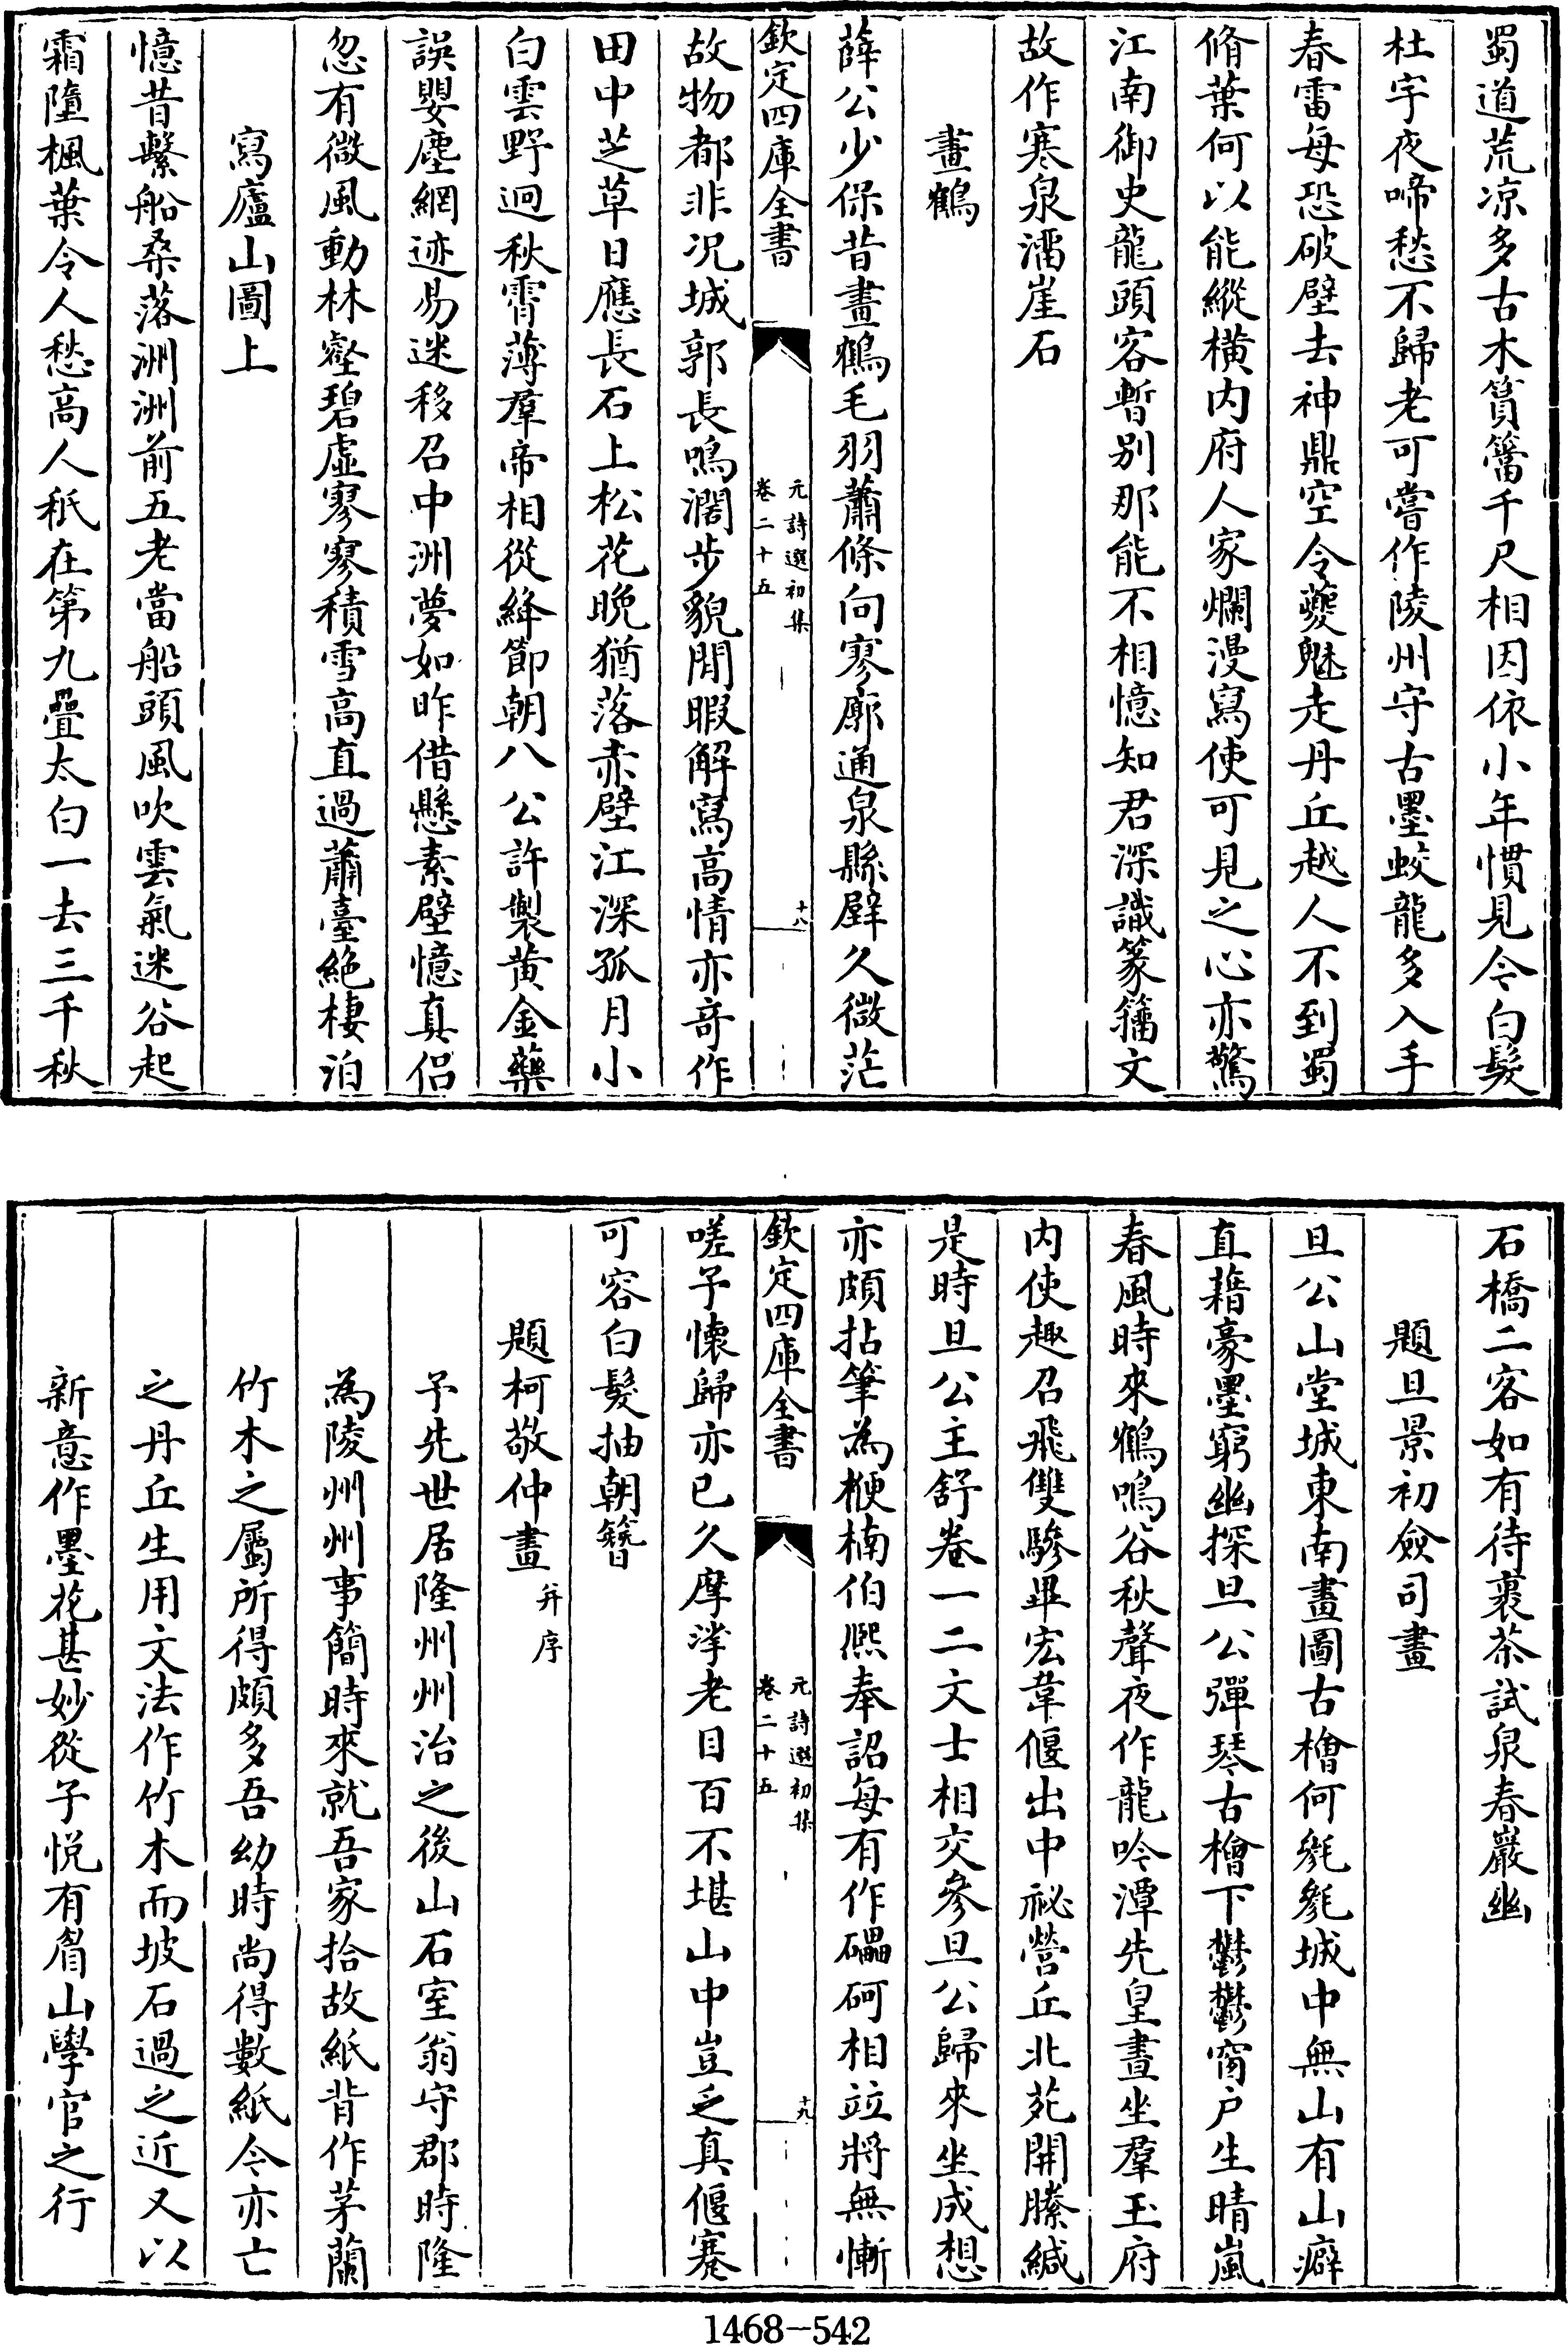 蜀道荒凉多古木篔簹千尺相因依小年慣見今白髮
杜宇夜啼愁不歸老可嘗作陵州守古墨蛟龍多入手
春雷每恐破壁去神鼎空令夔魅走丹丘越人不到蜀
脩葉何以能縱橫内府人家爛漫寫使可見之心亦驚
江南御史龍頭客暫别那能不相憶知君深識篆籀文
故作寒泉溜崖石
畫鶴
薛公少保昔畫鶴毛羽蕭條向寥廓通泉縣壁久微茫
欽定四庫全書
元詩選初集
卷二十五
十八
故物都非况城郭長鳴濶步貌閒暇解寫高情亦竒作
田中芝草日應長石上松花晚猶落赤壁江深孤月小
白雲野迥秋霄薄羣帝相從絳節朝八公許製黄金藥
誤嬰塵網迹易迷移召中洲夢如昨借懸素壁憶真侣
忽有微風動林壑碧虛寥寥積雪高直過蕭臺絶棲泊
寫廬山圖上
憶昔繫船桑落洲洲前五老當船頭風吹雲氣迷谷起
霜隕楓葉令人愁高人秖在第九疊太白一去三千秋
石橋二客如有待裹茶試泉春巖幽
題旦景初僉司畫
旦公山堂城東南畫圖古檜何毿毿城中無山有山癖
直藉豪墨窮幽探旦公彈琴古檜下鬱鬱窗户生晴嵐
春風時來鶴鳴谷秋聲夜作龍吟潭先皇晝坐羣玉府
内使趣召飛雙驂畢宏韋偃出中祕營丘北苑開縢緘
是時旦公主舒卷一二文士相交參旦公歸來坐成想
亦頗拈筆為楩楠伯熙奉詔每有作礧砢相竝將無慚
欽定四庫全書
元詩選初集
卷二十五
十九
嗟予懷歸亦已久摩挲老目百不堪山中豈乏真偃蹇
可容白髮抽朝簮
題柯敬仲畫并序
予先世居隆州州治之後山石室翁守郡時隆
為陵州州事簡時來就吾家拾故紙背作茅蘭
竹木之屬所得頗多吾幼時尚得數紙今亦亡
之丹丘生用文法作竹木而坡石過之近又以
新意作墨花甚妙從子悦有眉山學官之行
1468-542